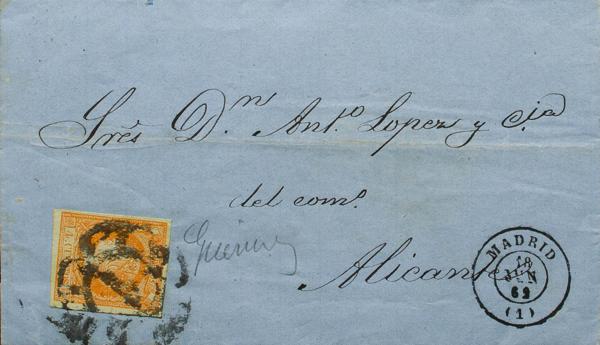 Sres D.n Ant.o Lopez y C.ia
del com.o
Alicante
MADRID
18
JUN
62
(1)